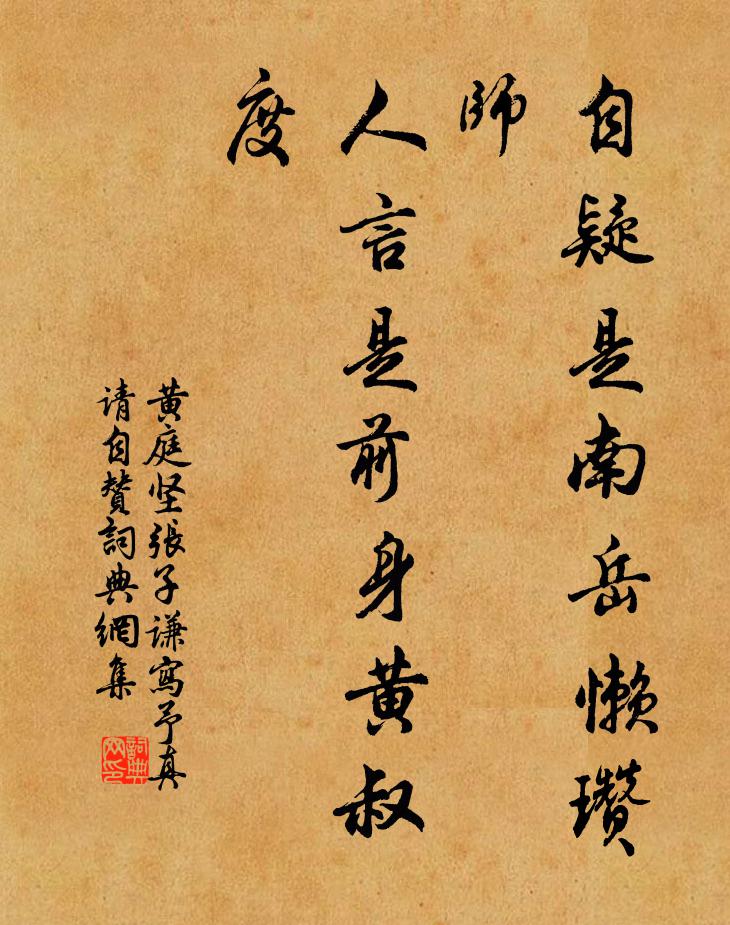 自疑是南岳懒瓒
師
人言是前身黄叔
度
黄庭坚張子谦寫予真
请自贊詞典網集
詞典
网印